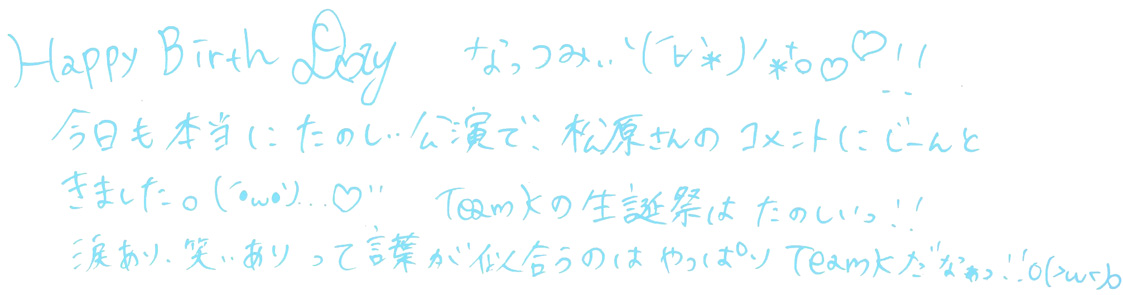 Happy Birth Day なっつみぃ ヽ(´∀`*)ﾉ*+。♡♡!!
今日も本当にたのしい公演で、松原さんのコメントにじーんと
きました。(´•ω•`)...♡" TeamKの生誕祭はたのしいっ!!
涙あり、笑いありって言葉が似合うのはやっぱり TeamKだなぁっ!!o(>ω<)o